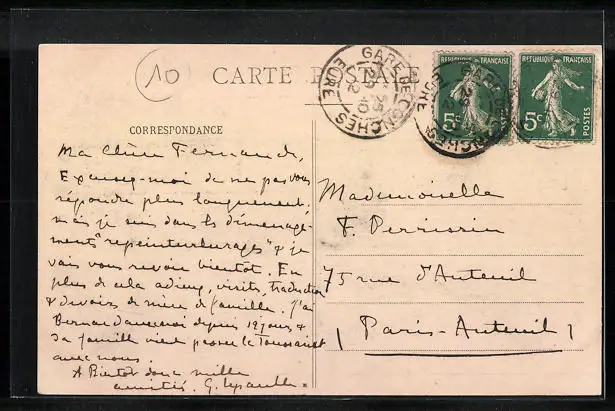 10
CARTE POSTALE
CORRESPONDANCE
GARE DE CONCHES
EURE
REPUBLIQUE FRANÇAISE
5c
POSTES
REPUBLIQUE FRANÇAISE
5c
POSTES
Ma Chère Fernande,
Excusez-moi de ne pas vous
répondre plus longuement,
mais je suis dans les déménage-
ments "repeinturlurages" & je
vais vous revoir bientôt. En
plus de cela adieux, visites, traduction
& devoirs de mère de famille. J'ai
depuis 12 jours &
sa famille vient passer la Toussaint
avec nous.
A Bientôt donc mille
amitiés. G.
Mademoiselle
F.
75 rue d'Auteuil
(Paris-Auteuil)